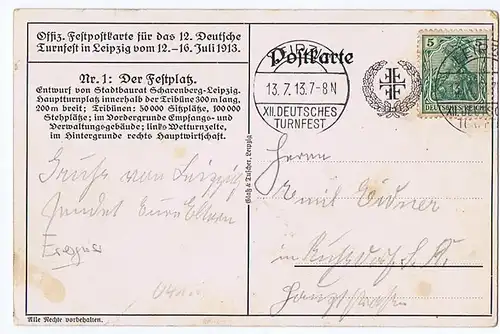 Offiz. Festpostkarte für das 12. Deutsche
Turnfest in Leipzig vom 12.-16. Juli 1913.
Nr. 1: Der Festplatz.
Entwurf von Stadtbaurat Scharenberg-Leipzig.
Hauptturnplatz innerhalb der Tribüne 300 m lang,
200 m breit; Tribünen: 50000 Sitzplätze, 100000
Stehplätze; im Vordergrunde Empfangs- und
Verwaltungsgebäude; links Wetturnzelte,
im Hintergrunde rechts Hauptwirtschaft.
Postkarte
LEIPZIG
13.7.13.7-8N
XII. DEUTSCHES
TURNFEST
5
DEUTSCHES REICH
XII. DEUTSCHES
Glatz & Tutscher, Leipzig
Grüße von Leipzig
sendet Eure Eltern
Herrn
Emil
in
Hauptstrasse
Alle Rechte vorbehalten.